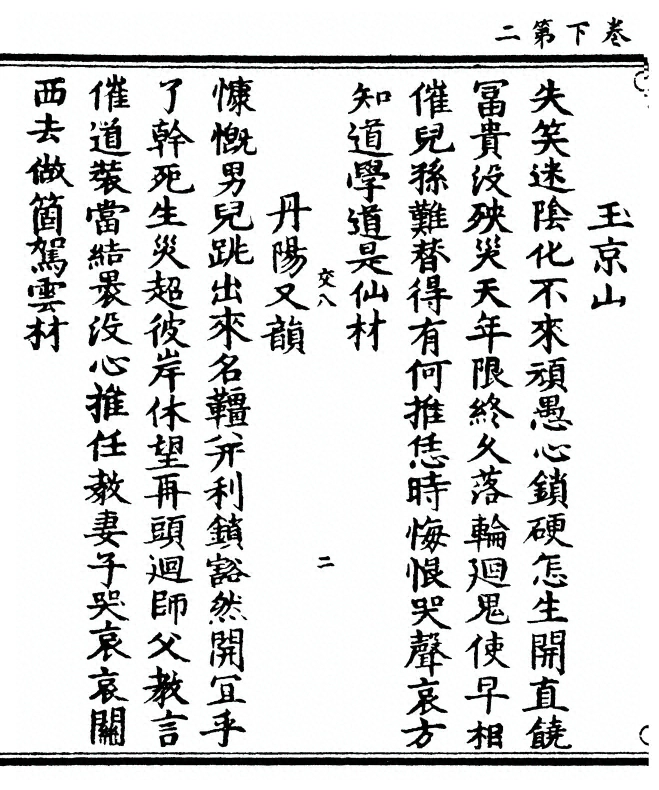 卷下第二
玉京山
失笑迷陰化不來頑愚心鎖硬怎生開直饒
冨貴没殃災天年限終久落輪廻鬼使早相
催兒孫難替得有何推恁時悔恨哭聲哀方
知道學道是仙材
交八
二
丹陽又韻
慷慨男兒跳出來名韁并利鎖豁然開冝乎
了幹死生災超彼岸休望再頭迴師父教言
催道裝當結褁没心推任教妻子哭哀哀關
西去做箇駕雲材